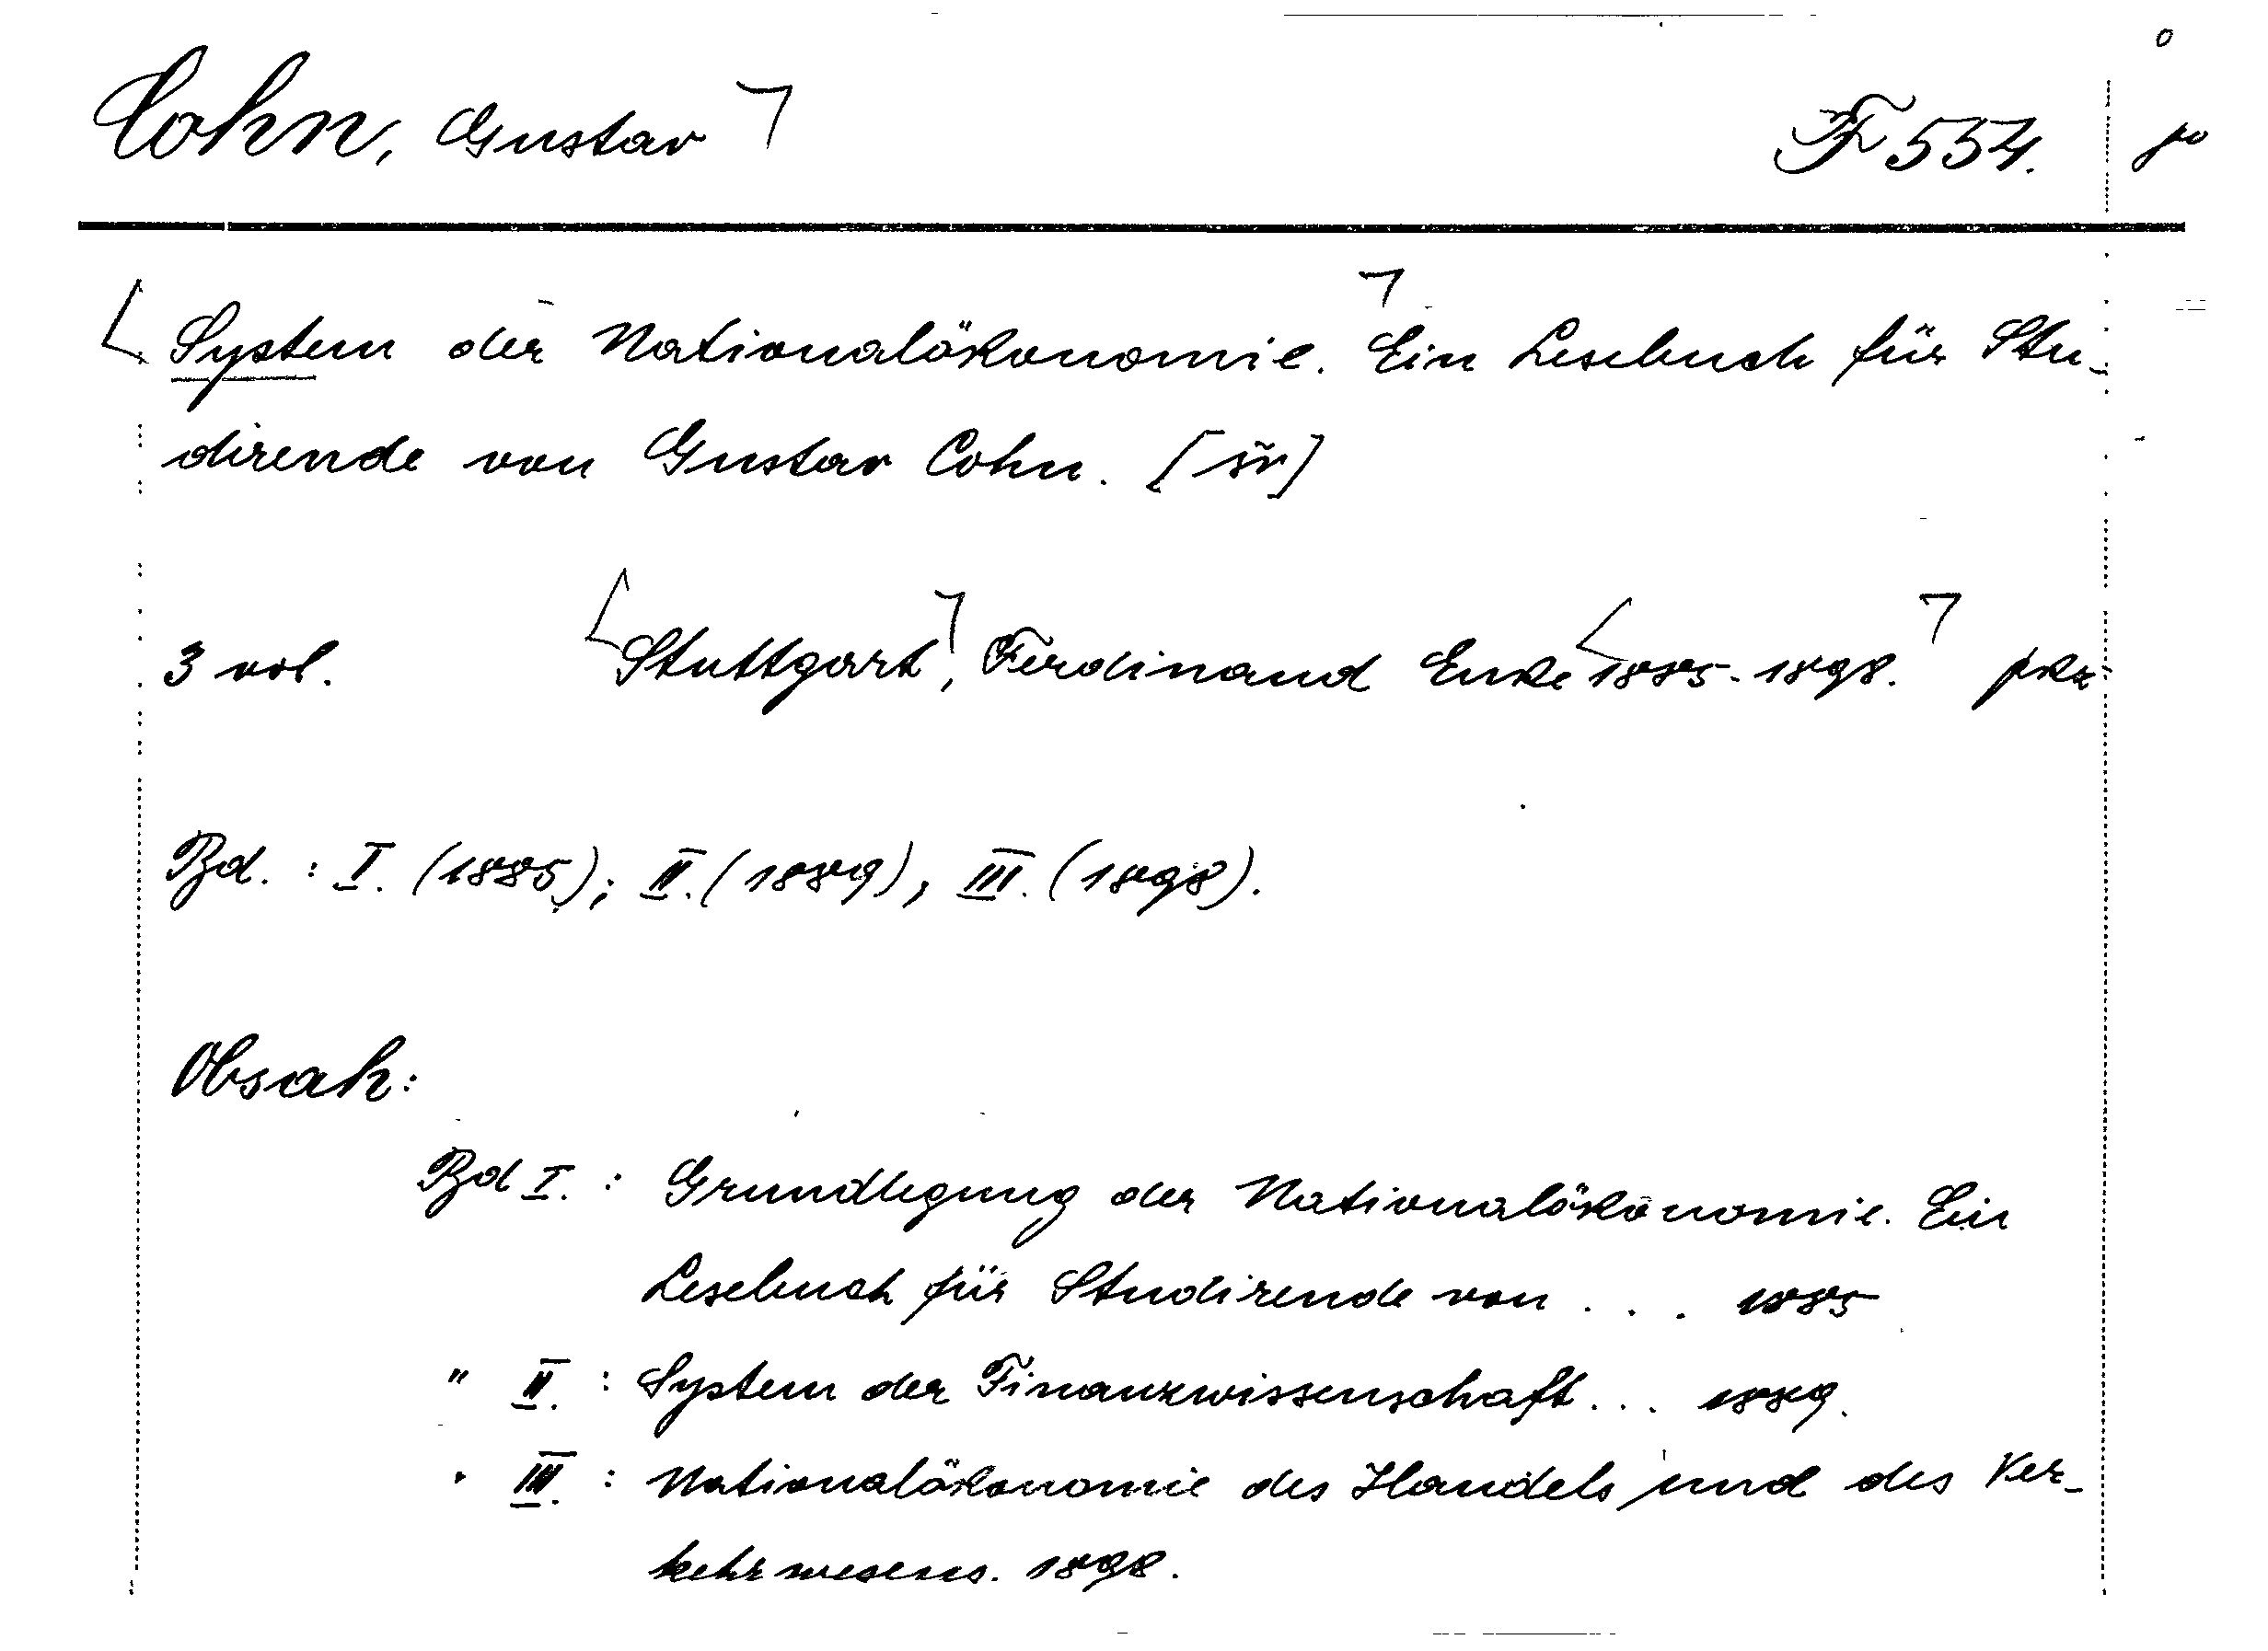 Cohn, Gustav F 554.
System der Nationalökonomie. Ein Lesebuch für Stu-
dirende von Gustav Cohn. [šř]
3 vol. Stuttgart, Ferdinand Enke 1885-1898.
Bd. : I. (1885); II. (1889), III. (1898).
Obsah:
Bd I. : Grundlegung der Nationalökonomie. Ein
Lesebuch für Studirende von . . . 1885
" II. : System der Finanzwissenschaft... 1889.
" III. : Nationalökonomie des Handels und des Ver-
kehrwesens. 1898.